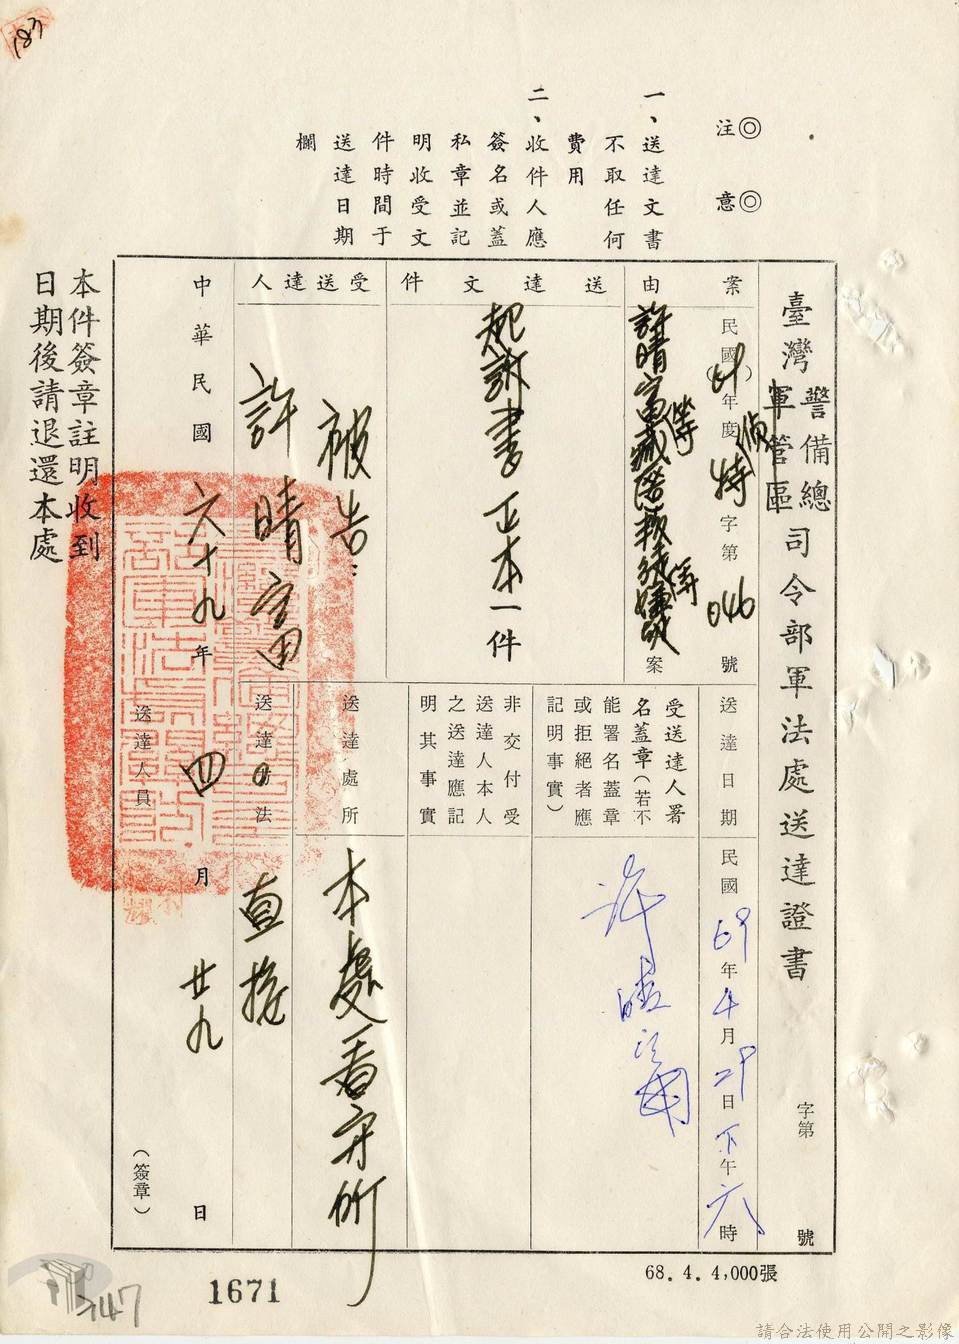 183
◎注意◎
一、送達文書
不取任何
費用
二、收件人應
簽名或蓋
私章並記
明收受文
件時間于
送達日期
欄
臺灣警備總司令部軍法處送達證書
軍管區
字第 號
案由
民國( )年度特偵字第046號
許晴富等藏匿叛徒等嫌疑案
送達文件
起訴書正本一件
受送達人
被告：
許晴富
送達日期
民國69年4月29日下午六時
受送達人署
名蓋章(若不
能署名蓋章
或拒絕者應
記明事實)
許晴富
非交付受
送達人本人
之送達應記
明其事實
送達處所
本處看守所
送達方法
直接
中華民國六十九年四月廿九日
送達人員
(簽章)
本件簽章註明收到
日期後請退還本處
68.4.4,000張
1671
747
請合法使用公開之影像